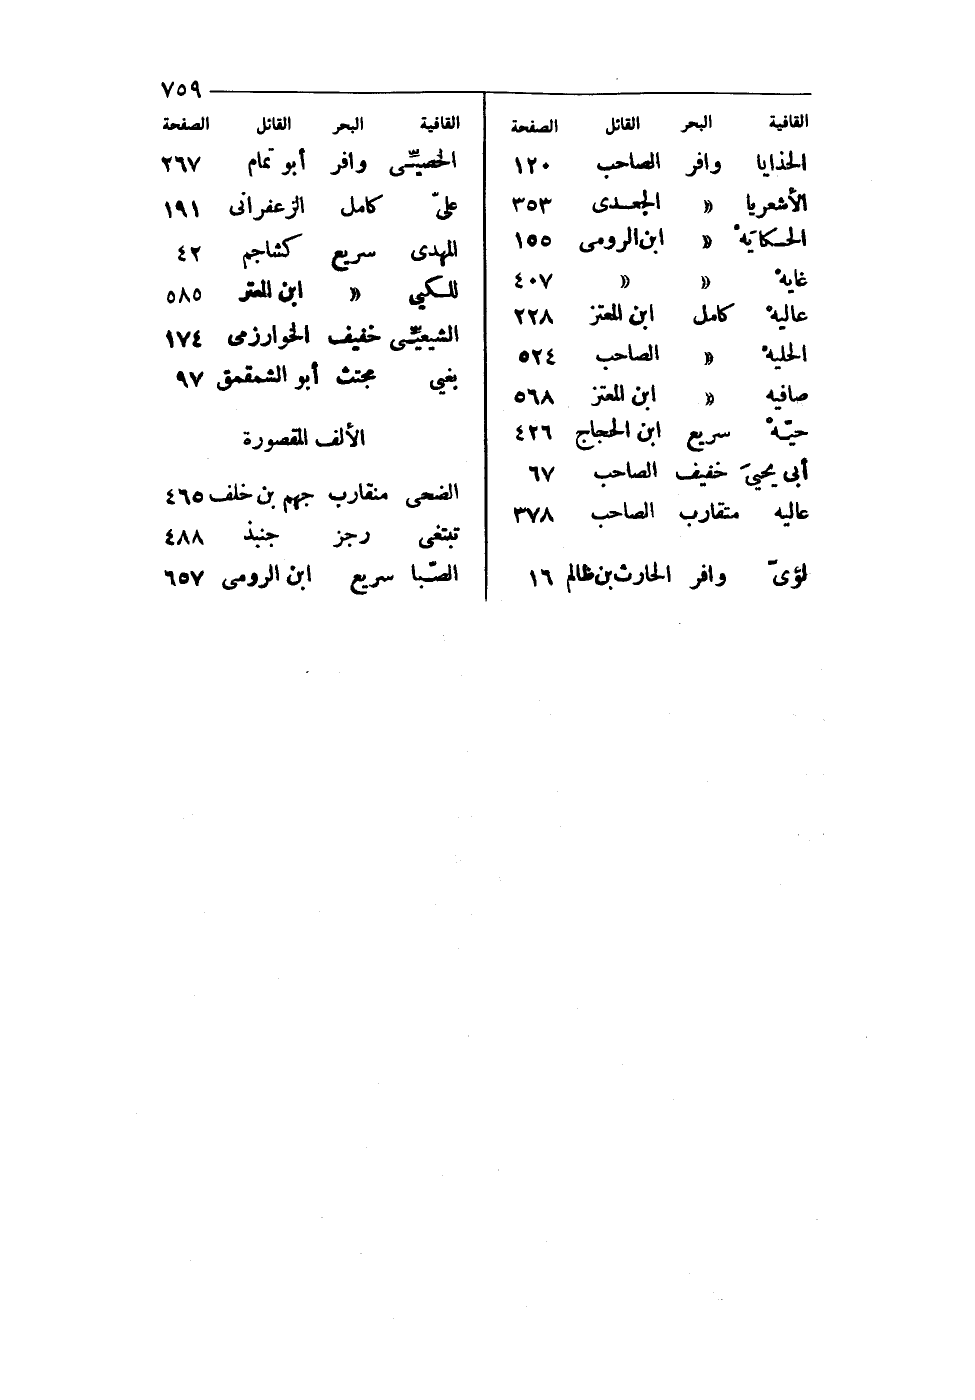 ٧٥٩
القافية البحر القائل الصفحة
الحذايا وافر الصاحب ١٢٠
الأشعريا « الجعدى ٣٥٣
الحكايَهْ « ابن الرومى ١٥٥
غايهْ « « ٤٠٧
عاليهْ كامل ابن المعتز ٢٢٨
الحليهْ « الصاحب ٥٢٤
صافيه « ابن المعتز ٥٦٨
حيّهْ سريع ابن الحجاج ٤٢٦
أبى يحيىَ خفيف الصاحب ٦٧
عاليه متقارب الصاحب ٣٧٨
لؤىّ وافر الحارث بن ظالم ١٦
القافية البحر القائل الصفحة
الخصيّى وافر أبو تمام ٢٦٧
علىّ كامل الزعفرانى ١٩١
المهدى سريع كشاجم ٤٢
للكي « ابن المعتز ٥٨٥
الشيعيّى خفيف الخوارزمى ١٧٤
بغيي مجتث أبو الشمقمق ٩٧
الألف المقصورة
الضحى متقارب جهم بن خلف ٤٦٥
تبتغى رجز جنبذ ٤٨٨
الصّبا سريع ابن الرومى ٦٥٧